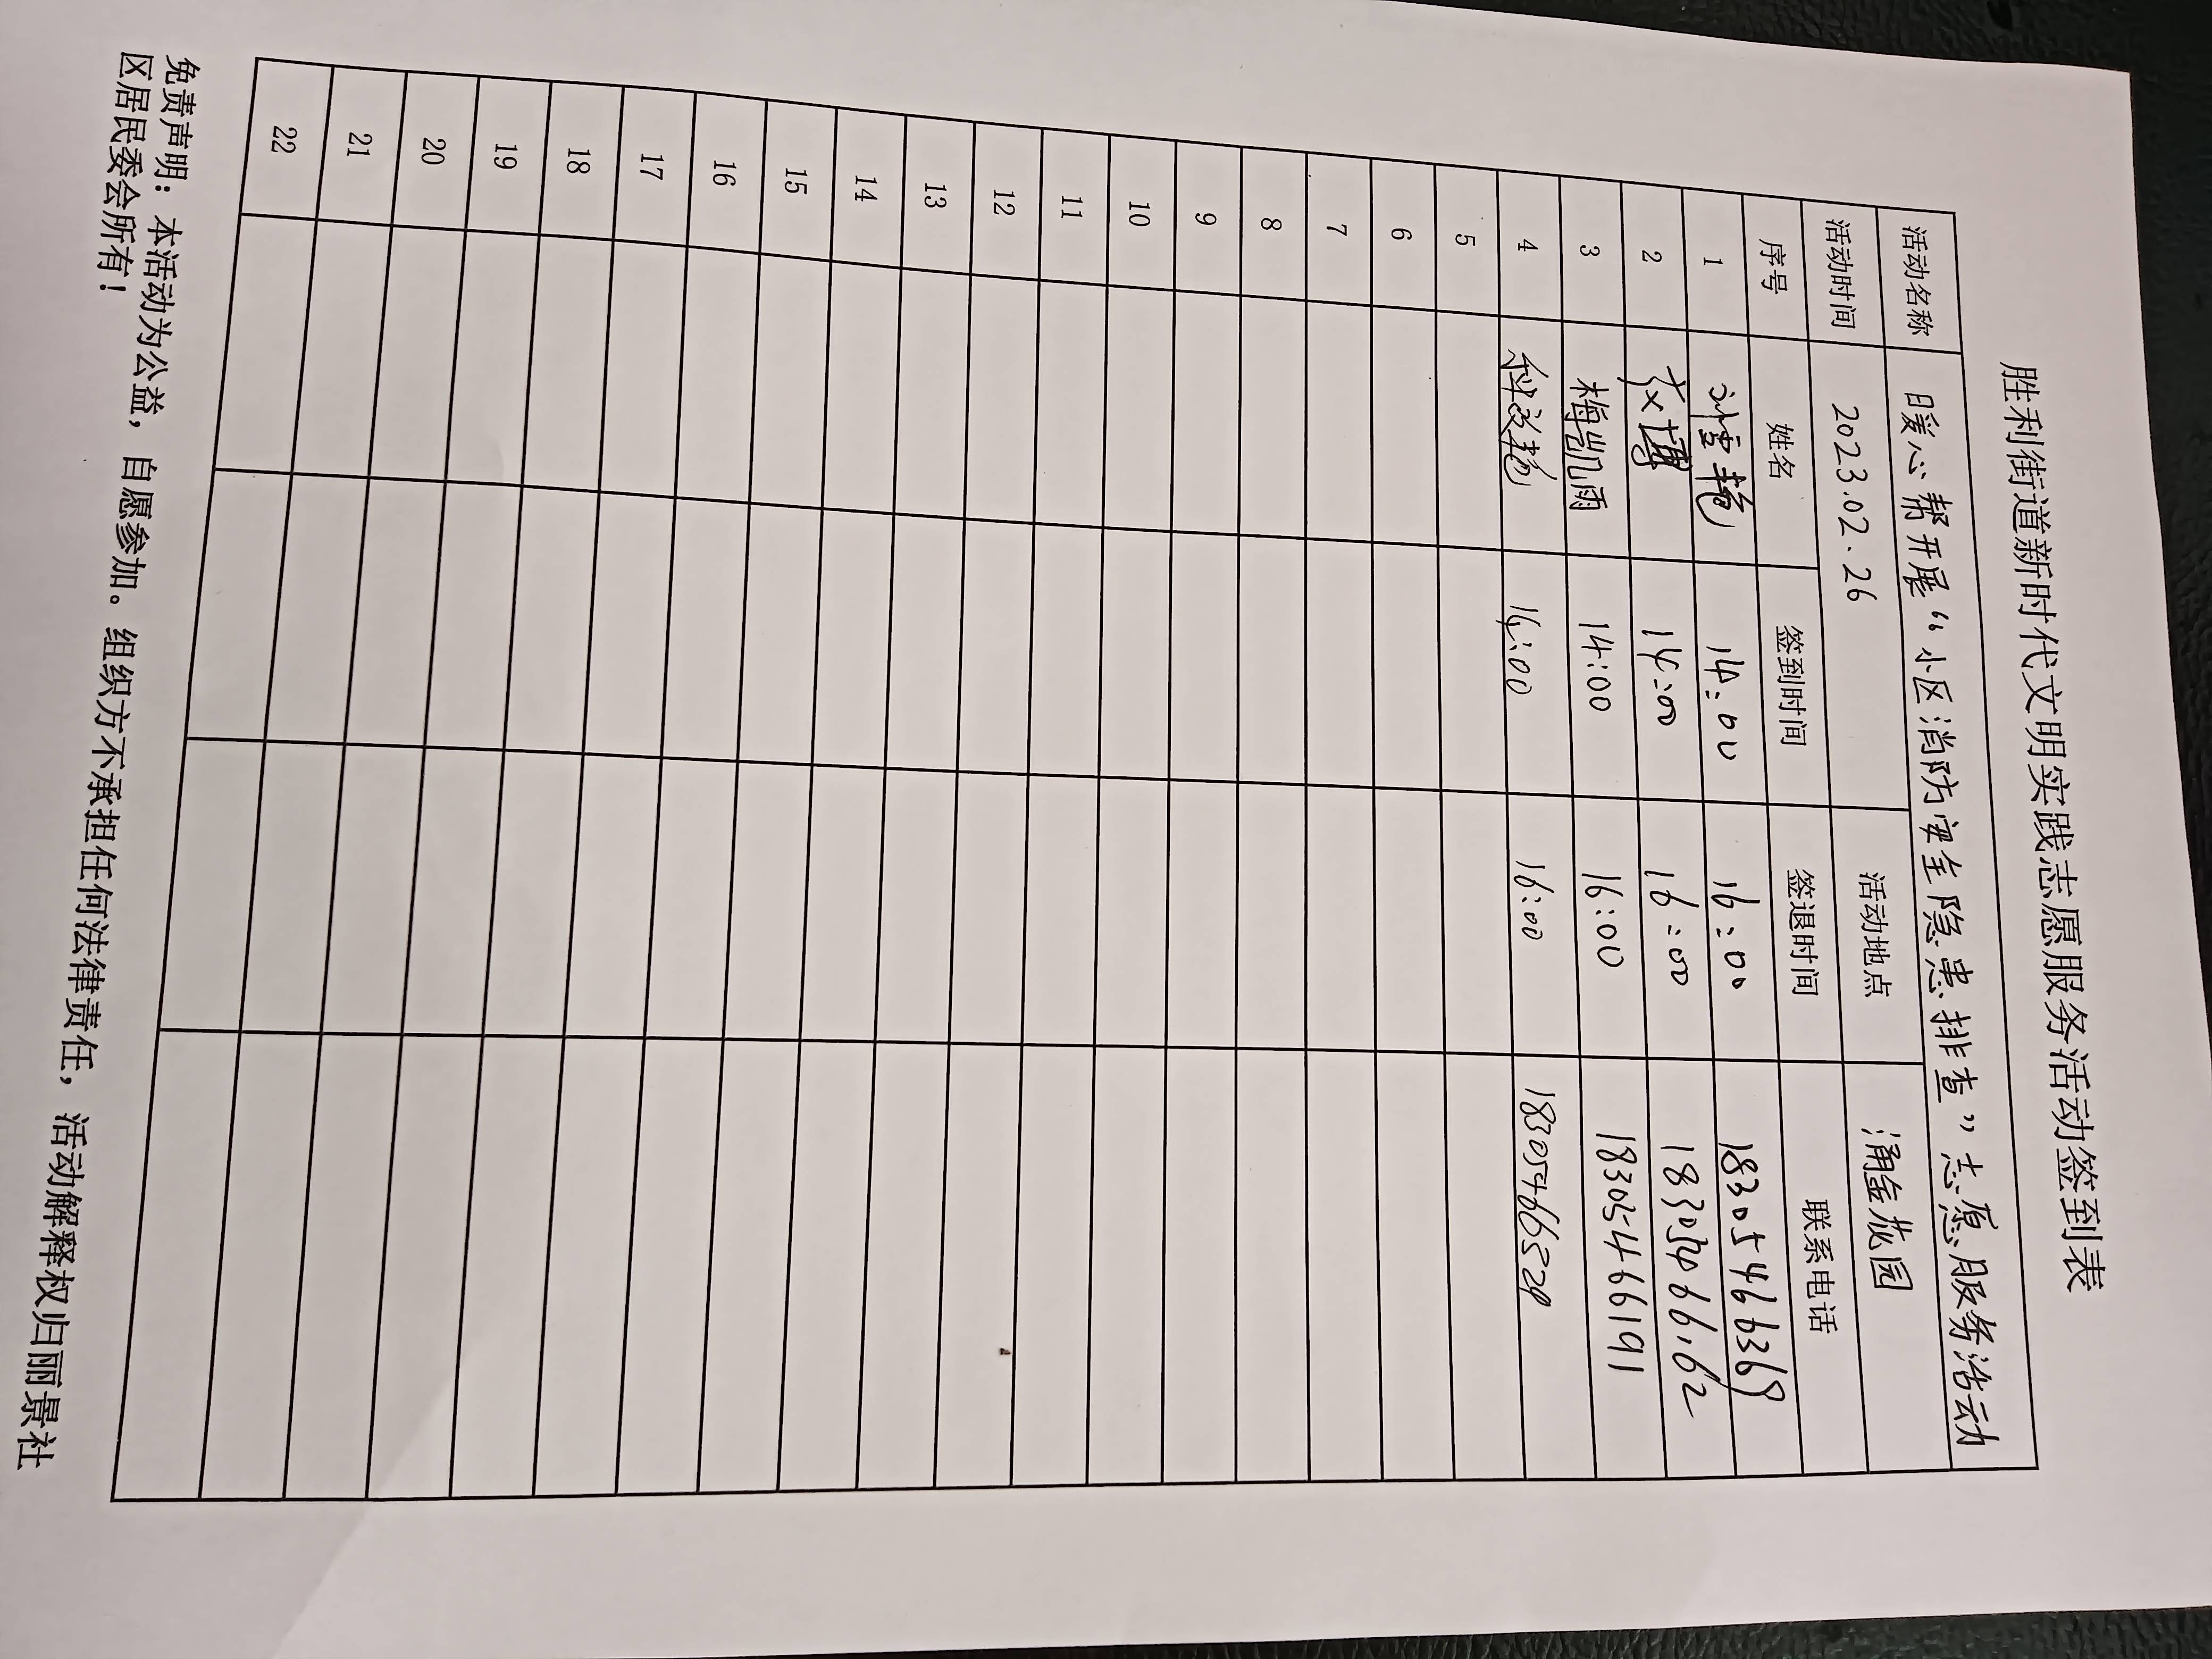 胜利街道新时代文明实践志愿服务活动签到表
活动名称 暖心帮开展“小区消防安全隐患排查”志愿服务活动
活动时间 2023.02.26 活动地点 涌金花园
序号 姓名 签到时间 签退时间 联系电话
1 14:00 16:00 18305466369
2 14:00 16:00
3 梅凯雨 14:00 16:00 18305466191
4 16:00 18305466529
5
6
7
8
9
10
11
12
13
14
15
16
17
18
19
20
21
22
免责声明：本活动为公益，自愿参加。组织方不承担任何法律责任，活动解释权归丽景社
区居民委会所有！